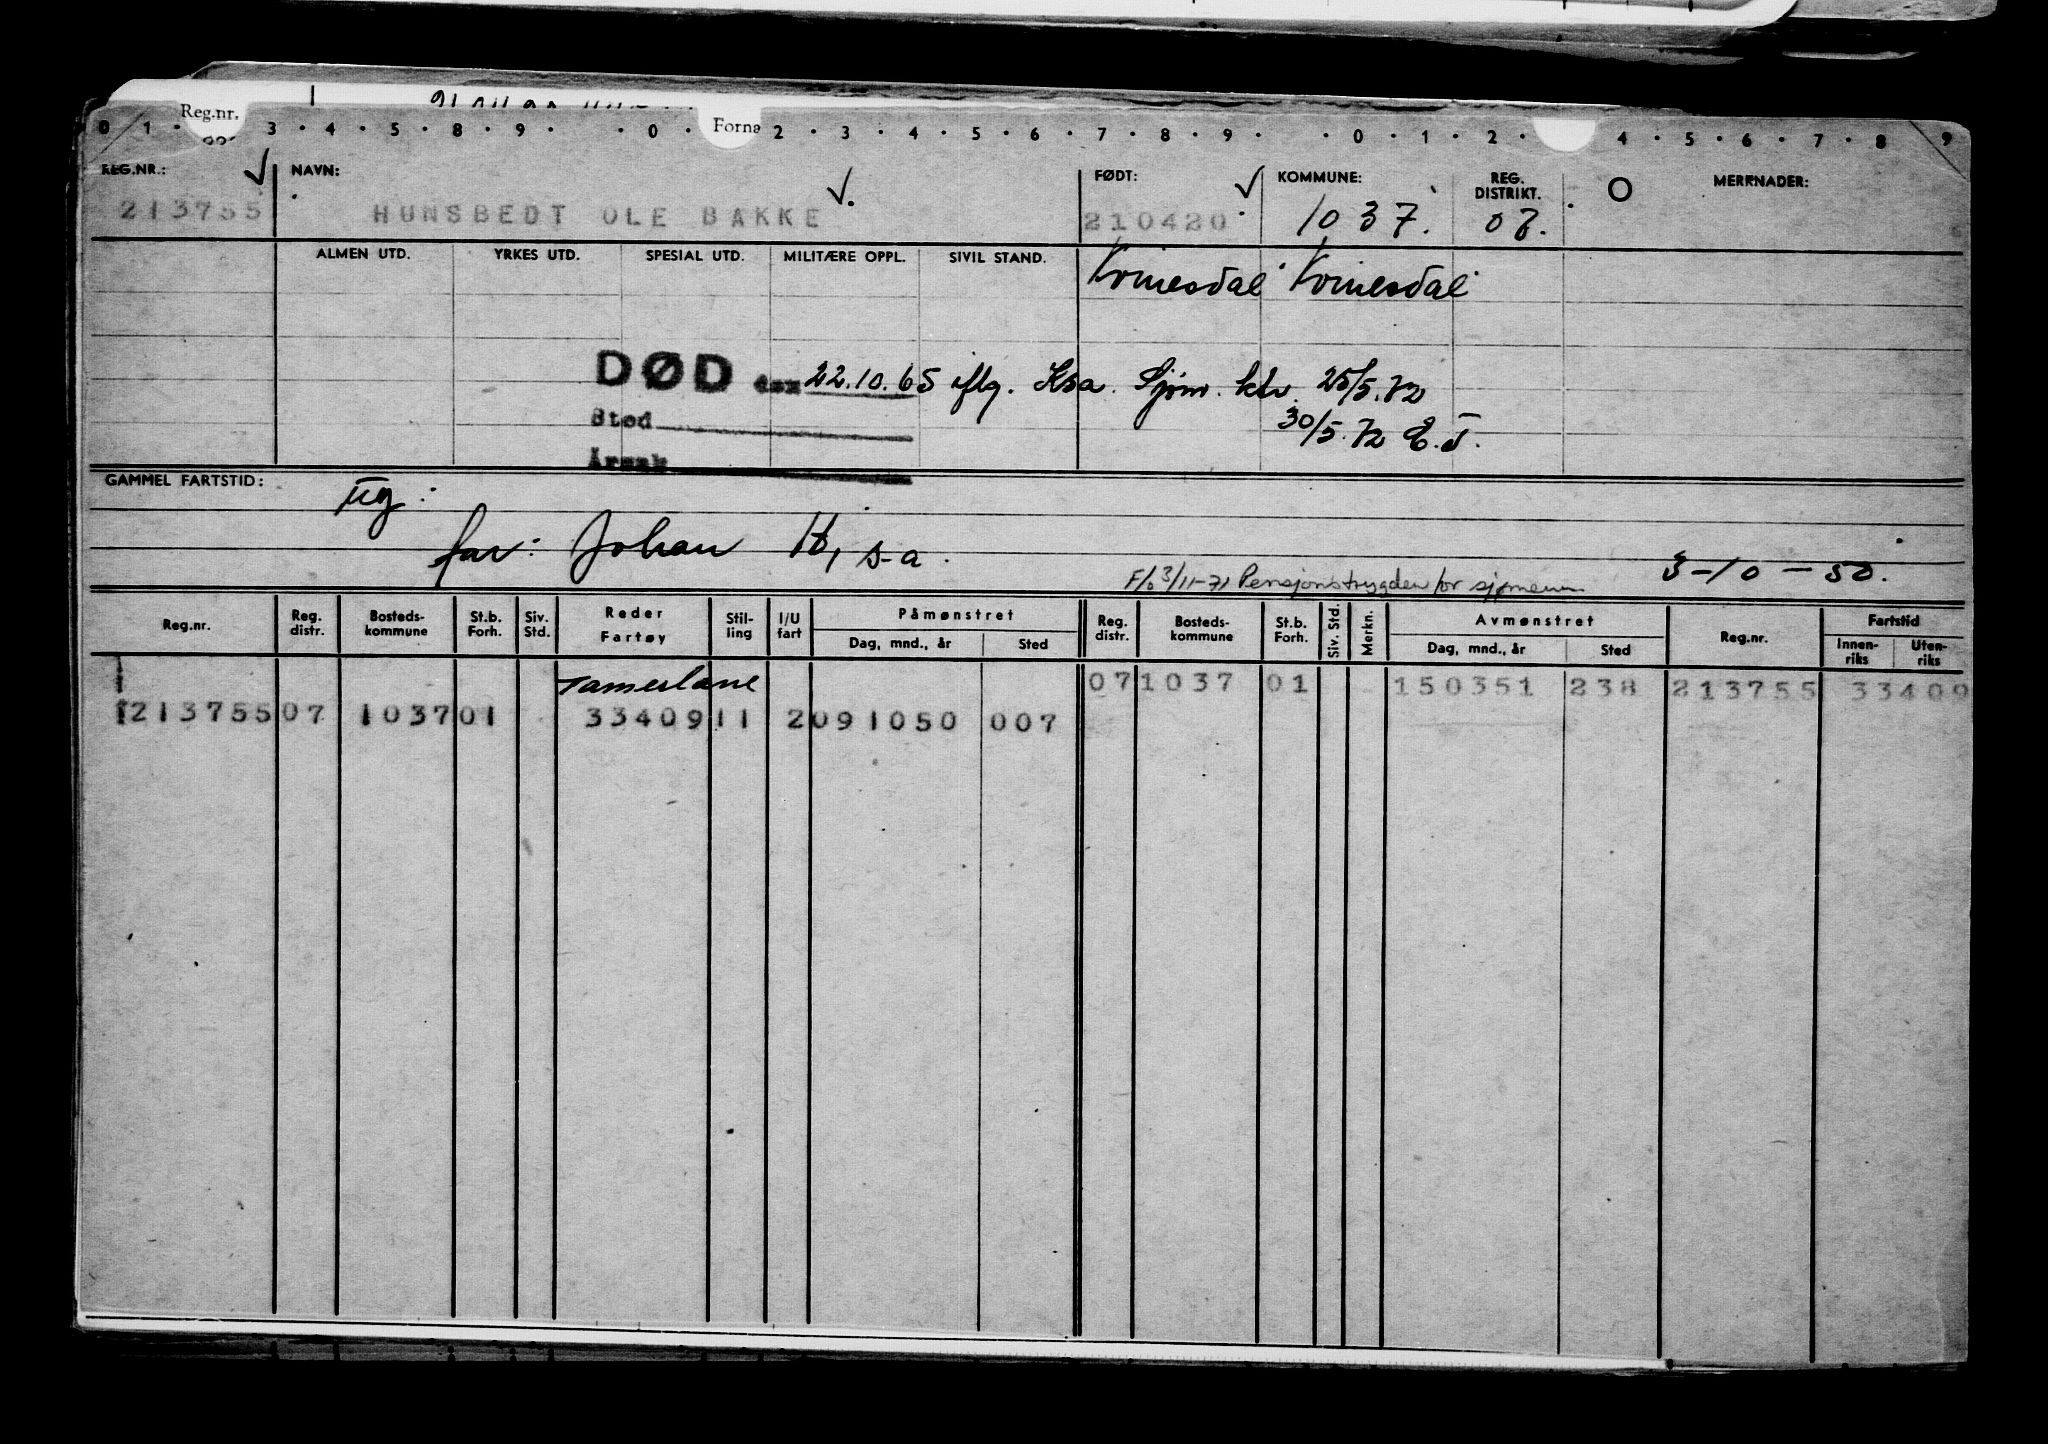 Reg.nr.
Forna
0 1 · 3 · 4 · 5 · 8 · 9 · · 0 · 2 · 3 · 4 · 5 · 6 · 7 · 8 · 9 · · 0 · 1 · 2 · 4 · 5 · 6 · 7 · 8 9
REG.NR.: NAVN: FØDT: KOMMUNE: REG. DISTRIKT. O MERKNADER:
213755 HUNSBEDT OLE BAKKE 210420 1037. 07.
ALMEN UTD. YRKES UTD. SPESIAL UTD. MILITÆRE OPPL. SIVIL STAND. Kvinesdal Kvinesdal
DØD den 22.10.65 iflg. Ksa. Sjøm. ktr. 25/5.72
Sted 30/5.72 E.J.
Årsak
GAMMEL FARTSTID: Ug:
far: Johan H, s-a. 3-10-50.
F/o 3/11-71 Pensjonstrygden for sjømenn
Reg.nr. Reg. distr. Bosteds-kommune St.b. Forh. Siv. Std. Reder Fartøy Stil-ling I/U fart Påmønstret Dag, mnd., år Sted Reg. distr. Bosteds-kommune St.b. Forh. Siv. Std. Merkn. Avmønstret Dag, mnd., år Sted Reg.nr. Fartstid Innen-riks Uten-riks
Tamerlane 07 1037 01 150351 238 213755 33409
213755 07 1037 01 33409 11 2 091050 007